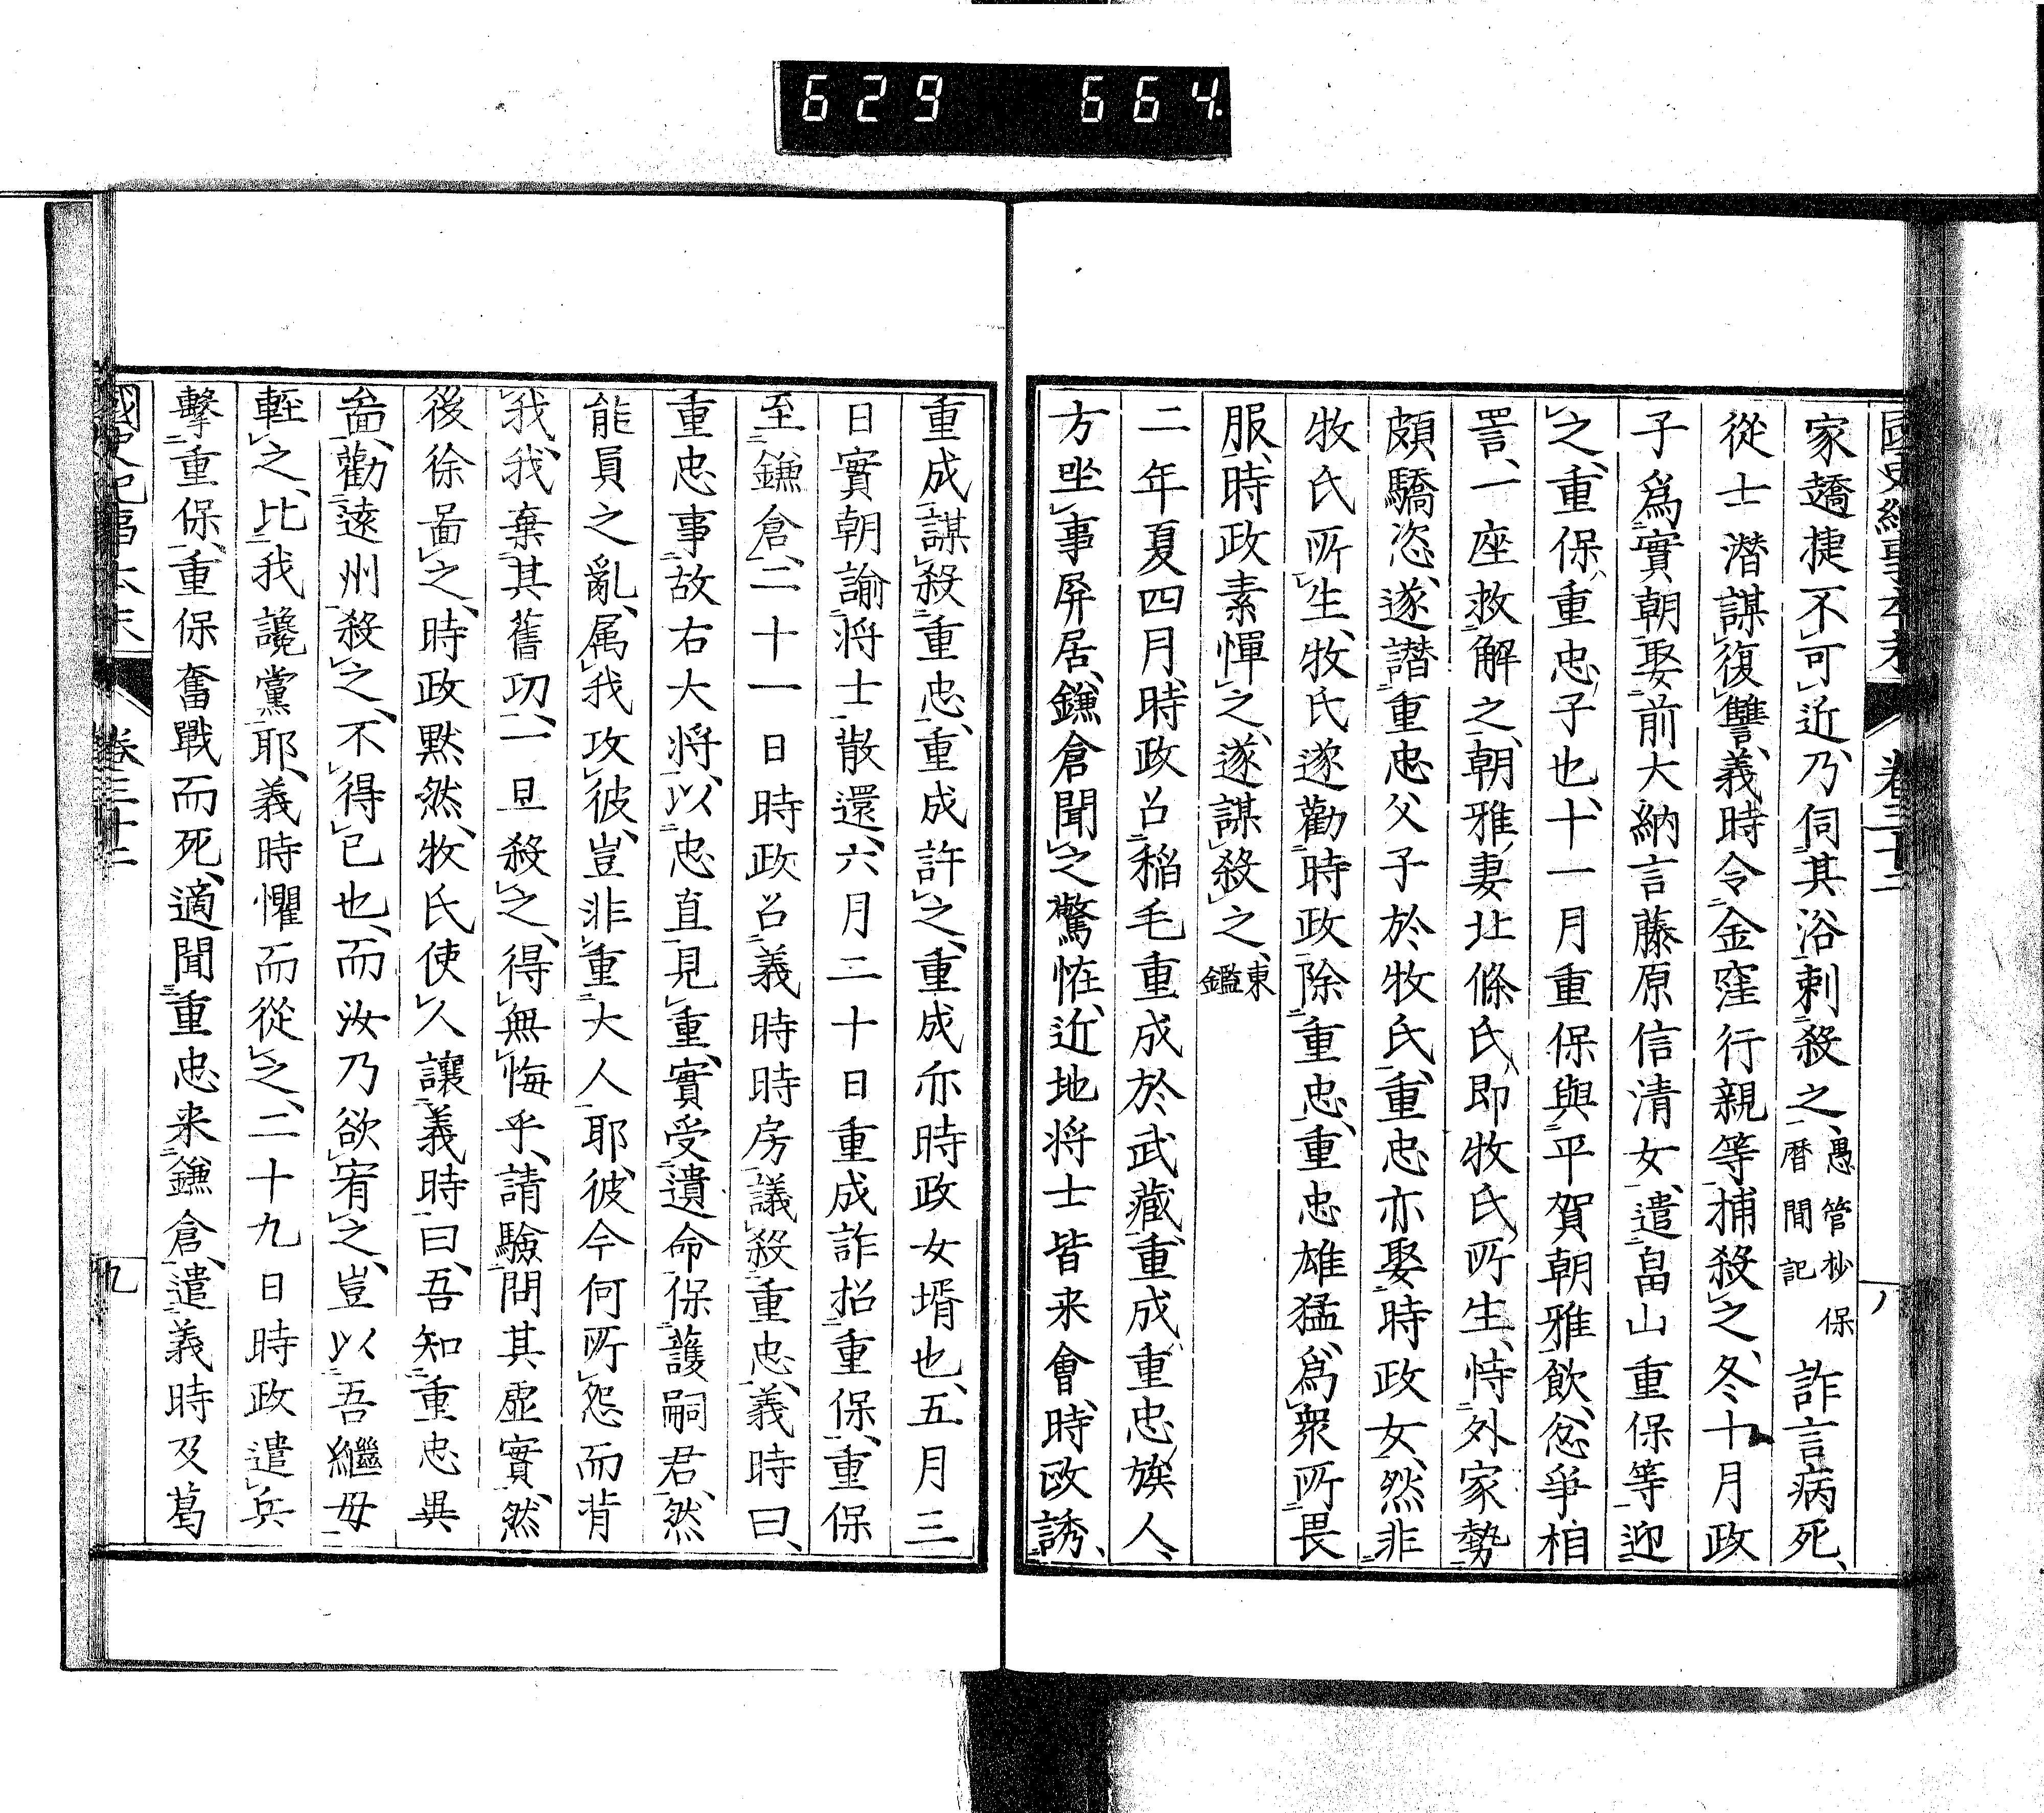 629 664
國史紀事本末 卷三十二 八
家趫捷不可近、乃伺其浴刺殺之、愚管抄保暦間記 詐言病死、
從士潛謀復讐、義時令金窪行親等捕殺之、冬十月政
子爲實朝娶前大納言藤原信清女、遣畠山重保等迎
之、重保、重忠子也、十一月重保與平賀朝雅飲、忿爭相
詈、一座救解之、朝雅妻北條氏、即牧氏所生、恃外家勢
頗驕恣、遂譖重忠父子於牧氏、重忠亦娶時政女、然非
牧氏所生、牧氏遂勸時政除重忠、重忠雄猛、爲衆所畏
服、時政素憚之、遂謀殺之、東鑑
二年夏四月、時政召稲毛重成於武藏、重成、重忠族人、
方坐事屏居、鎌倉聞之驚恠、近地将士皆来會、時政誘、
重成謀殺重忠、重成許之、重成亦時政女壻也、五月三
日實朝諭将士散還、六月二十日重成詐招重保、重保
至鎌倉、二十一日時政召義時時房議殺重忠、義時曰、
重忠事故右大将、以忠直見重、實受遺命保護嗣君、然
能員之亂、属我攻彼、豈非重大人耶、彼今何所怨而背
我、我棄其舊功、一旦殺之、得無悔乎、請驗問其虚實、然
後徐啚之、時政黙然、牧氏使人讓義時曰、吾知重忠異
啚、勸遠州殺之、不得已也、而汝乃欲宥之、豈以吾繼毋
輕之、比我讒黨耶、義時懼而從之、二十九日時政遣兵
擊重保、重保奮戰而死、適聞重忠来鎌倉、遣義時及葛
國史紀事本末 卷三十二 九